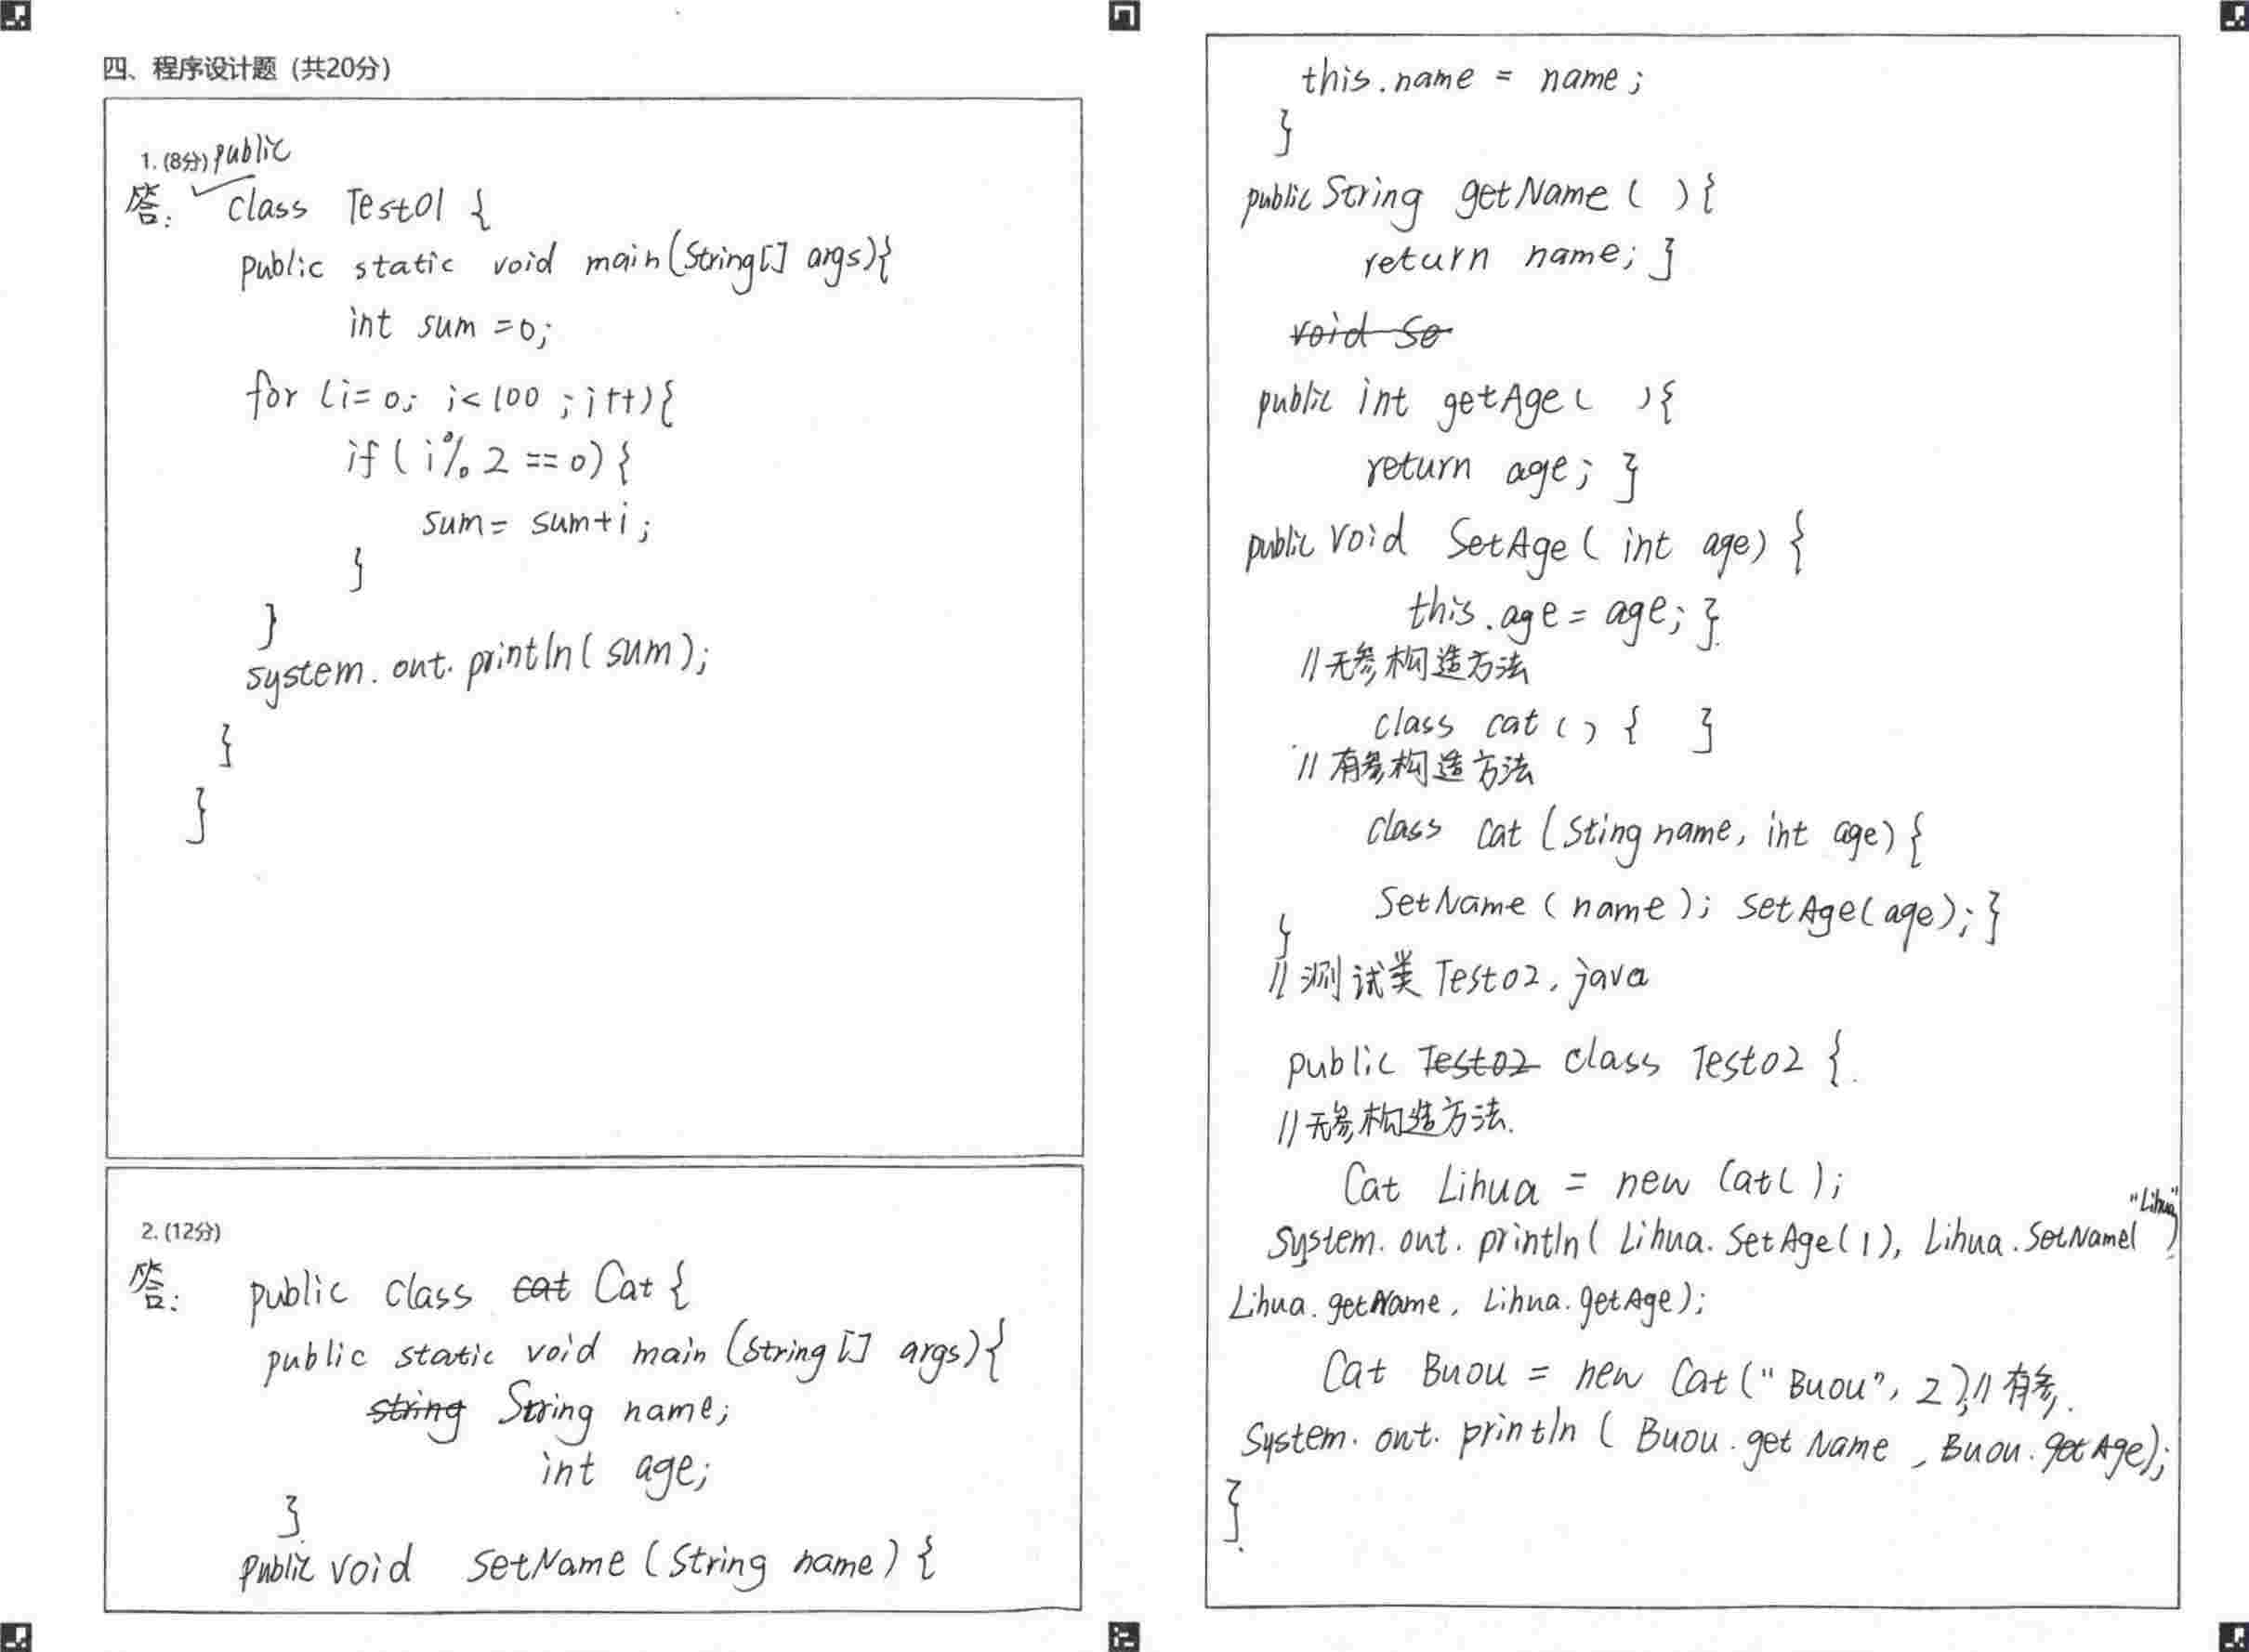 四、程序设计题（共20分）
1. (8分) public
答： class Test01 {
public static void main(String[] args){
int sum =0;
for (i= 0; i<100 ; i++){
if( i%2 ==0) {
sum= sum+i ;
}
}
system. out. println( sum);
}
}
2. (12分)
答： public class cat Cat {
public static void main (String [] args){
string String name;
int age;
}
public void SetName ( String name ) {
this.name = name ;
}
public String getName ( ){
return name; }
void Se
public int getAge ( ){
return age; }
public void SetAge ( int age) {
this.age = age; }
//无参构造方法
class cat () { }
//有参构造方法
class Cat ( Sting name, int age) {
SetName ( name ); SetAge( age); }
}
//测试类 Test02.java
public Test02 class Test02 {
//无参构造方法.
Cat Lihua = new Cat( );
"Lihua"
System. out. println( Lihua. SetAge( 1 ), Lihua. SetName( )
Lihua. getName, Lihua. getAge);
Cat Buou = new Cat ("Buou", 2);//有参.
System. out. println ( Buou. getName , Buou. getAge);
}